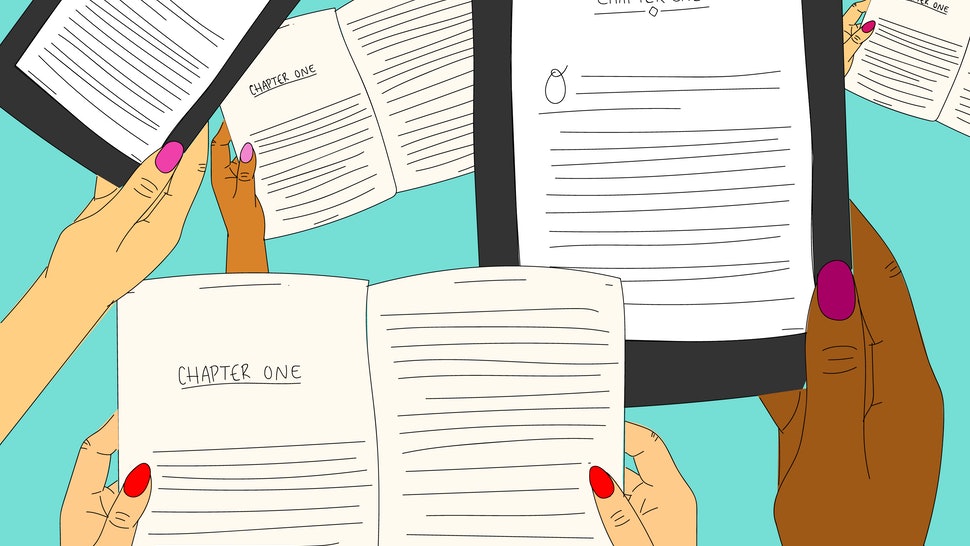 CHAPTER ONE
CHAPTER ONE
CHAPTER ONE
CHAPTER ONE